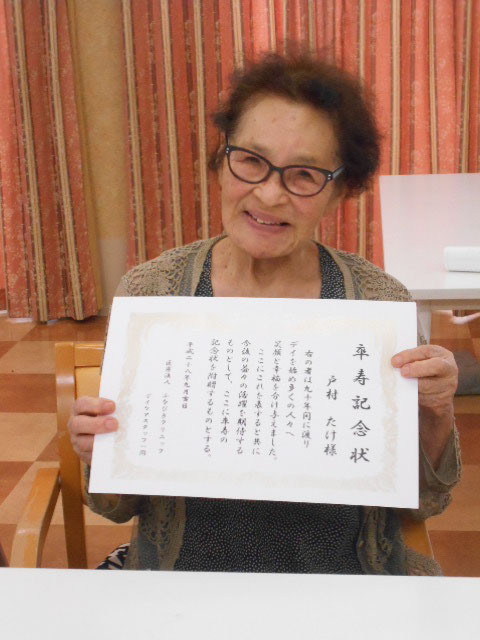 卒寿記念状
戸村 たけ様
右の者は九十年間に渡り
デイを始め多くの人々へ
笑顔と幸福を分け与えました。
ここにこれを表すると共に
今後の益々の活躍を期待する
ものとして、ここに卒寿の
記念状を附贈するものとする。
平成二十八年九月吉日
医療法人
デイケアスタッフ一同